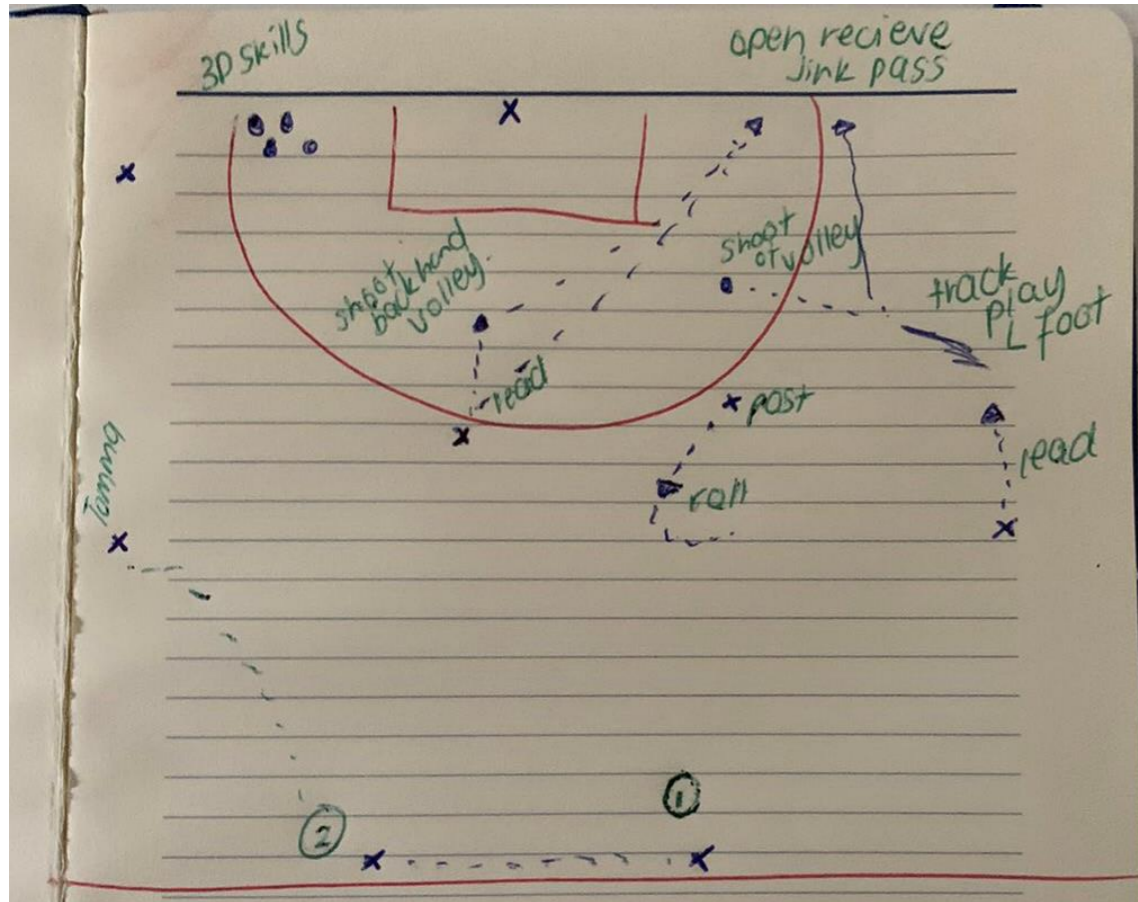 3D skills
open recieve
Jink pass
shoot
backhand
volley.
shoot
or volley
track
play
L foot
lead
post
lead
roll
2
1